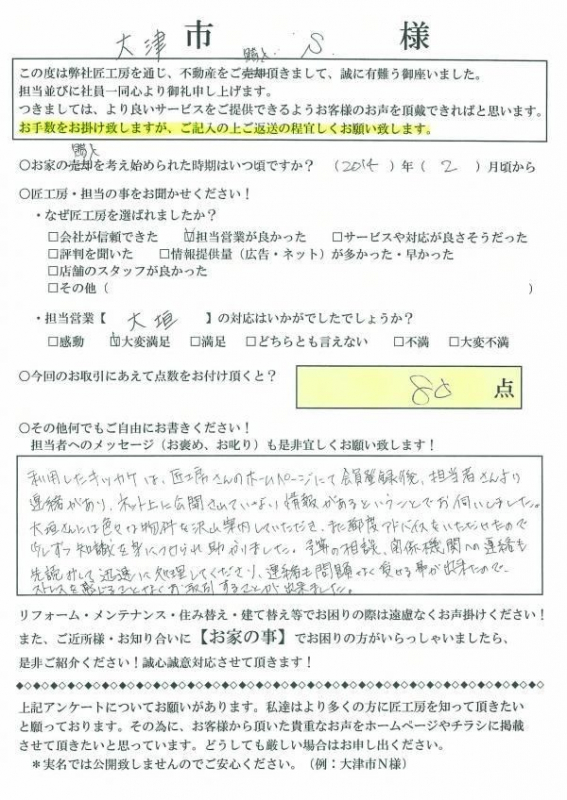 大津 市 S. 様
購入
この度は弊社匠工房を通じ、不動産をご売却頂きまして、誠に有難う御座いました。
担当並びに社員一同心より御礼申し上げます。
つきましては、より良いサービスをご提供できるようお客様のお声を頂戴できればと思います。
お手数をお掛け致しますが、ご記入の上ご返送の程宜しくお願い致します。
購入
○お家の売却を考え始められた時期はいつ頃ですか？（2014）年（2）月頃から
○匠工房・担当の事をお聞かせください！
・なぜ匠工房を選ばれましたか？
□会社が信頼できた ☑担当営業が良かった □サービスや対応が良さそうだった
□評判を聞いた □情報提供量（広告・ネット）が多かった・早かった
□店舗のスタッフが良かった
□その他（ ）
・担当営業【 大垣 】の対応はいかがでしたでしょうか？
□感動 ☑大変満足 □満足 □どちらとも言えない □不満 □大変不満
○今回のお取引にあえて点数をお付け頂くと？ 80 点
○その他何でもご自由にお書きください！
担当者へのメッセージ（お褒め、お叱り）も是非宜しくお願い致します！
利用したキッカケは、匠工房さんのホームページにて会員登録後、担当者さんより
連絡があり、ネット上に公開されていないより情報があるということでお伺いしました。
大垣さんには色々な物件を沢山案内していただき、また都度アドバイスをいただけたので
少しずつ知識を身につけられ助かりました。予算の相談、関係機関への連絡も
先読みして迅速に処理してくださり、連絡も問題なく受ける事が出来たので、
ストレスを感じることなくお取引することが出来ました。
リフォーム・メンテナンス・住み替え・建て替え等でお困りの際は遠慮なくお声掛けください！
また、ご近所様・お知り合いに【お家の事】でお困りの方がいらっしゃいましたら、
是非ご紹介ください！誠心誠意対応させて頂きます！
上記アンケートについてお願いがあります。私達はより多くの方に匠工房を知って頂きたい
と願っております。その為に、お客様から頂いた貴重なお声をホームページやチラシに掲載
させて頂きたいと思っています。どうしても厳しい場合はお申し出ください。
＊実名では公開致しませんのでご安心ください。（例：大津市N様）